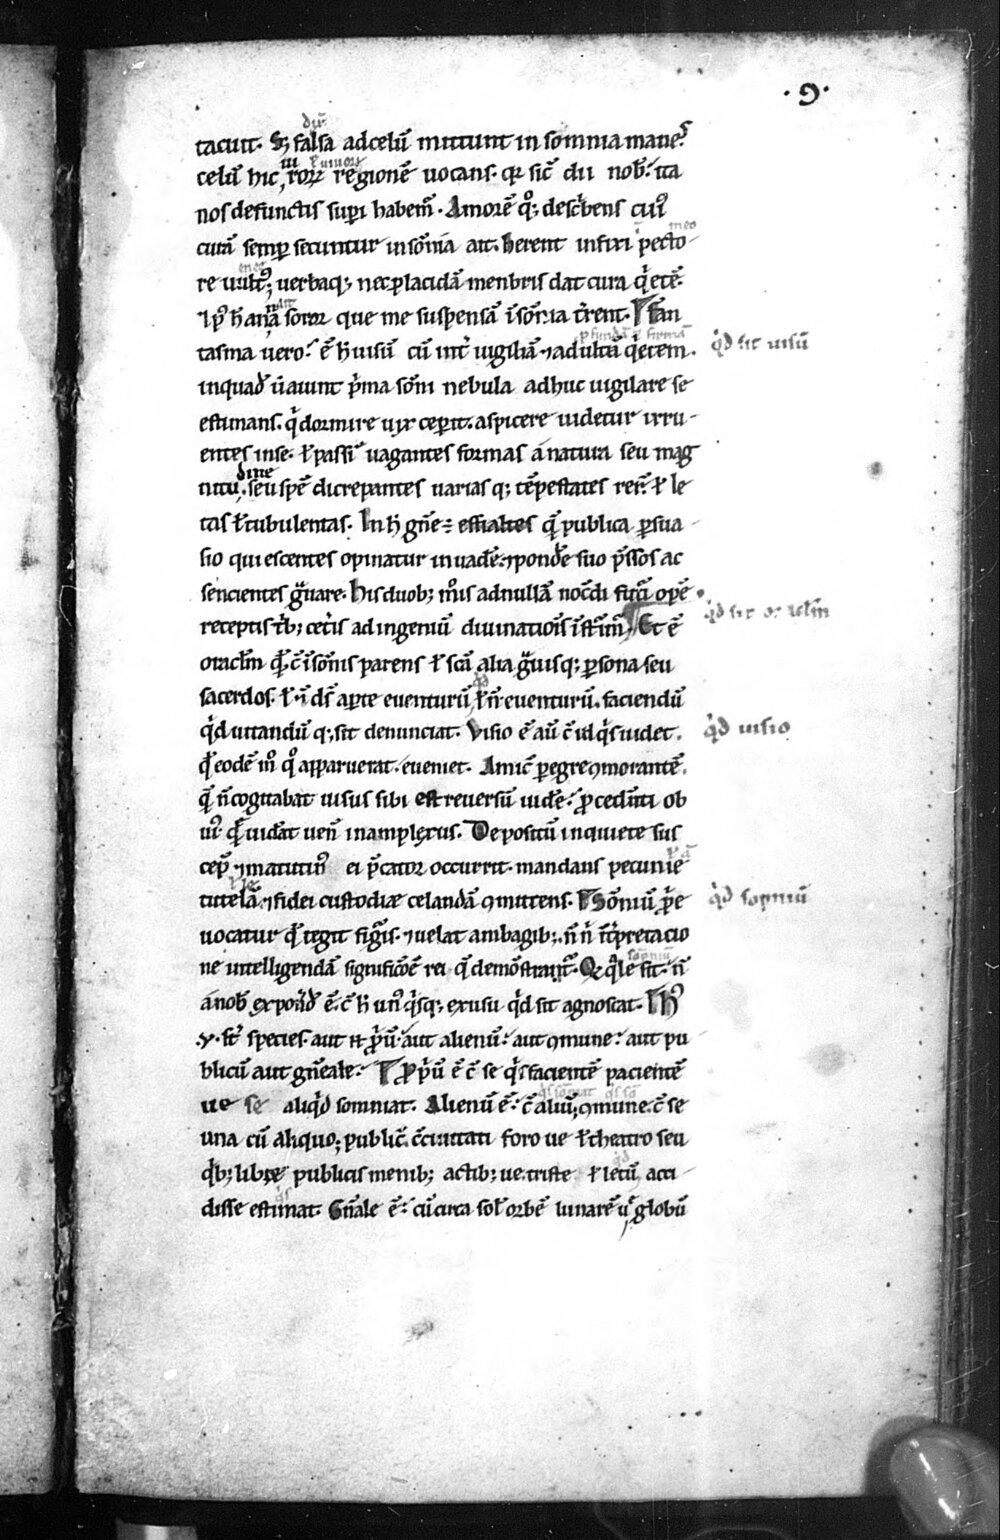 ·9·
tacuit. Sꝫ falsa ad celū mittunt in somnia manes
celū hic uiuoꝝ regionē uocans. qꝛ sic̄ dii nob̄. ita
nos defunctis superi habem̄. Amorē qͦꝫ describens cui᷒
curā semꝑ secuntur insōnia ait. herent infixi pecto
re uult᷒; uerbaqꝫ nec placidā menbris dat cura qͥetē.
soror que me suspensā īsōnia t̄rent. ¶ fan
tasma uero. ē h̄ uisū cū int̄ uigiliā ⁊ adultā qͥetem.
inquad ūaiunt pͥma som̄i nebula adhuc uigilare se
estimans. qͥ dormire uix ceperit. aspicere uidetur irru
entes inse. ł passī uagantes formas a natura seu mag
nitudine. seu spē dicrepantes uarias qꝫ tēpestates rerū. ł le
tas ł tubulentas. In h̄ gn̄e ē efialtes qͥ publica ꝑsua
sio quiescentes opinatur inuadē. ⁊ pondē suo pͥssos ac
sencientes gͣuare. His duobꝫ mͦis ad nullā nocͤdi futͥ opē
receptis tͥbꝫ cetͥs ad ingeniū diuinatiois īstͥuim̄. ¶ Et ē
oraclm̄ qͩ c̄ īsōnis parens ł scā alia gͣuisqꝫ ꝑsona seu
sacerdos. ł n̄ ds̄ aꝑte euenturū qͩ ł n̄ euenturū. faciendū
qͥd uitandū qꝫ sit denunciat. Visio ē aū c̄ id qͥs uidet.
qͩ eodē mͦ qͦ apparuerat. eueniet. Amic̄ ꝑegre ꝯmorantē.
qͥ n̄ cogitabat uisus sibi est reuersū uidē. ꝓcedn̄ti ob
ui᷒ qͥ uidͣat uen̄ in amplexus. Depositū in quiete sus
cep̄ ⁊ matutin᷒ ei pͥcator occurrit. mandans pecunie
tutelā. ⁊ fidei custodiæ celandā ꝯmittens. ¶ Sōniū ꝓpe
uocatur qͩ tegit figͣis. ⁊ uelat ambagibꝫ. n̄ n̄ īt̄pretacio
ne intelligendā significōē rei qͣ demōstratur. Qꝺ qͣle sit. n̄
a nob̄ exponēd ē. c̄ h̄ un᷒ qͥsqꝫ ex usu qͥd sit agnoscat. ¶ H᷒
.v. st̄ species. aut n̄ ꝓpͥū aut alienū. aut ꝯmune. aut pu
blicū aut gn̄eale. ¶ Ꝓpͥū ē c̄ se qͥs facientē pacientē
ue se aliqͥd somniat. Alienū ē. c̄ aliū; ꝯmune. c̄ se
una cū aliquo; public̄. c̄ ciuitati foro ue ł theatro seu
qͥbꝫ libꝫ publicis menibꝫ actibꝫ ue. triste ł letū acci
disse estimat. Gn̄ale ē. cū circa sol̄ orbē lunarē uͤ globū
qͥd sit uisū
qͥd sit oraclm̄
qͥd uisio
qͥd somniū